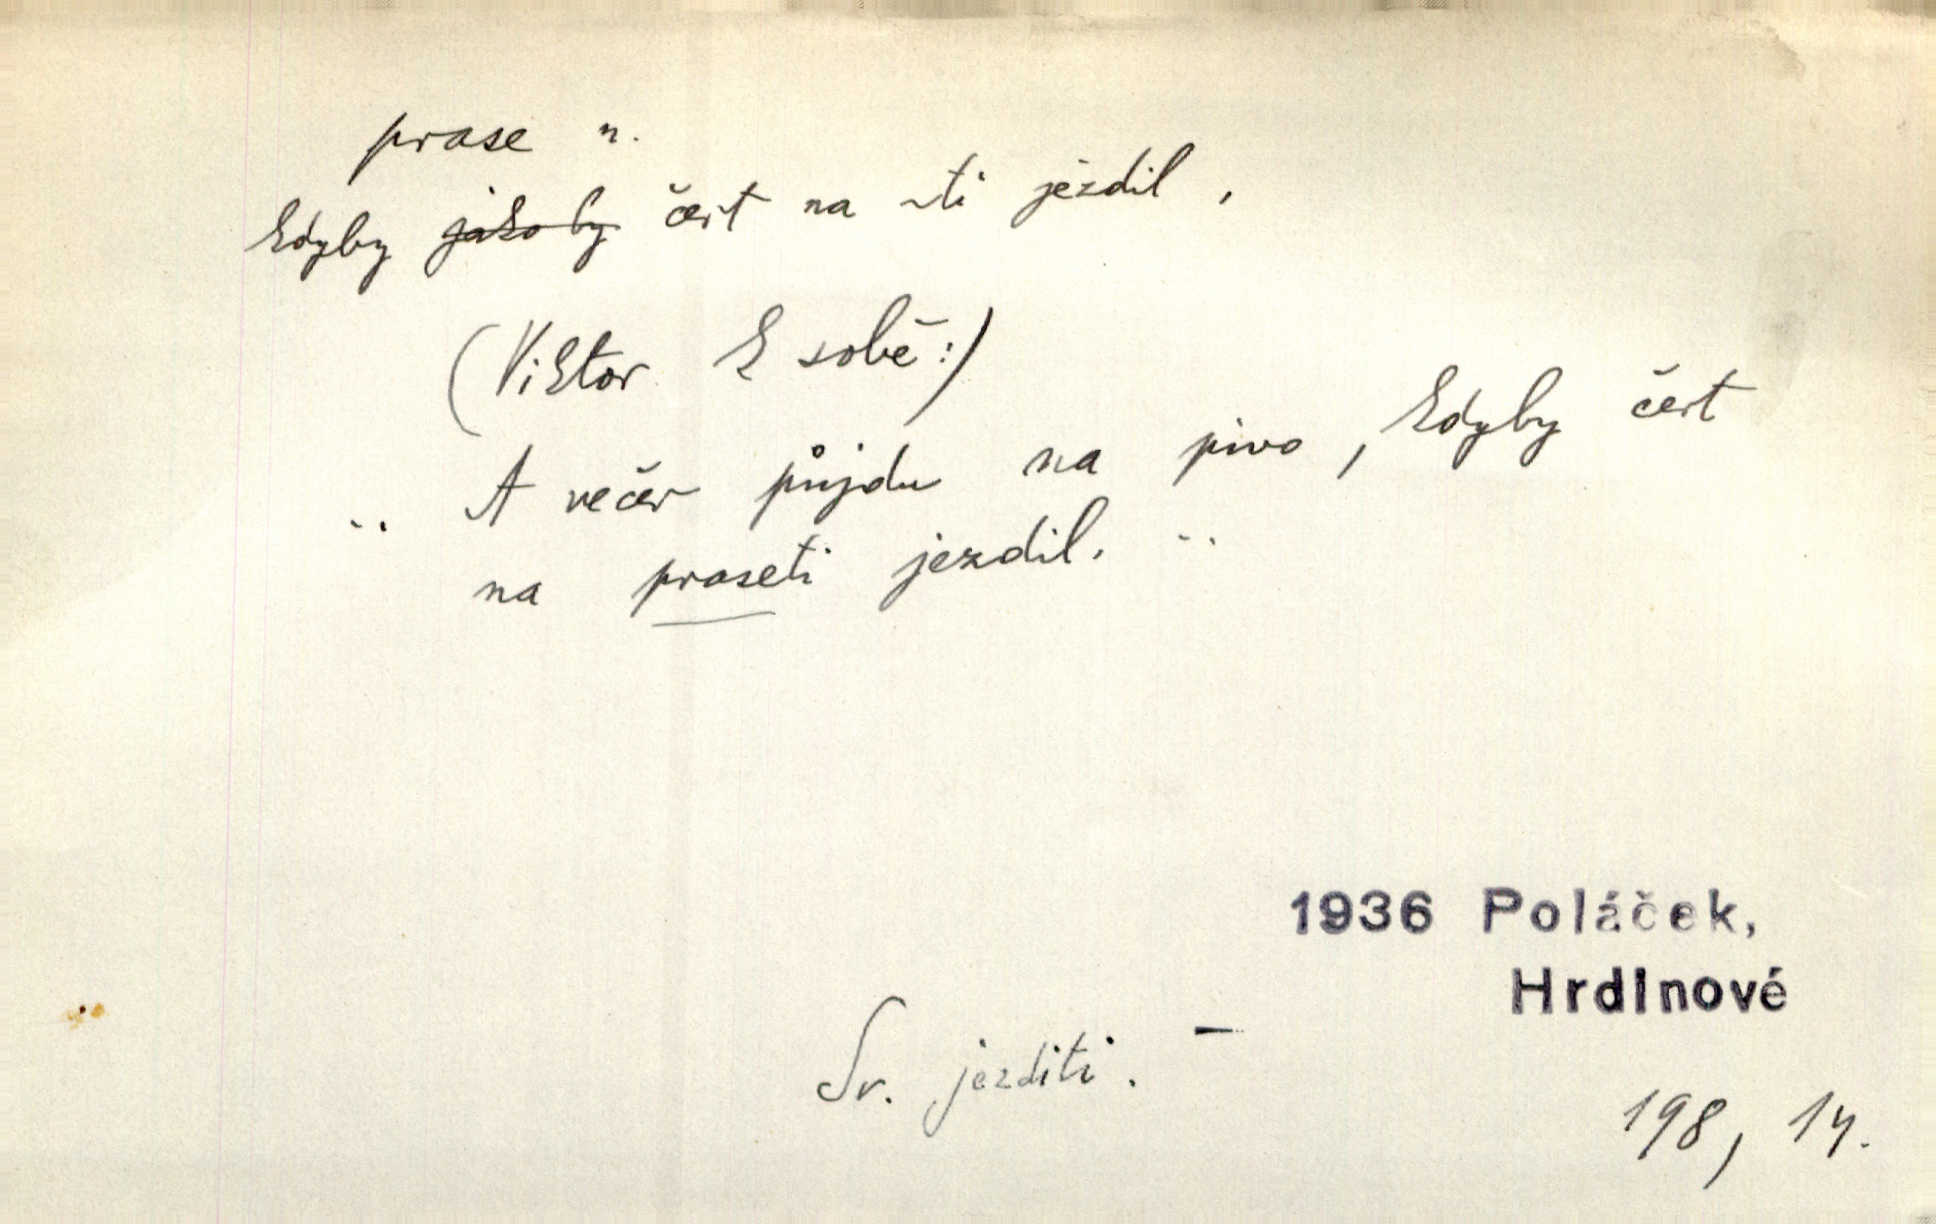 prase n.
kdyby jakoby čert na ~ti jezdil,
(Viktor k sobě:)
.. A večer půjdu na pivo, kdyby čert
na praseti jezdil. ..
1936 Poláček,
Hrdinové
Sv. jezditi. –
198, 14.